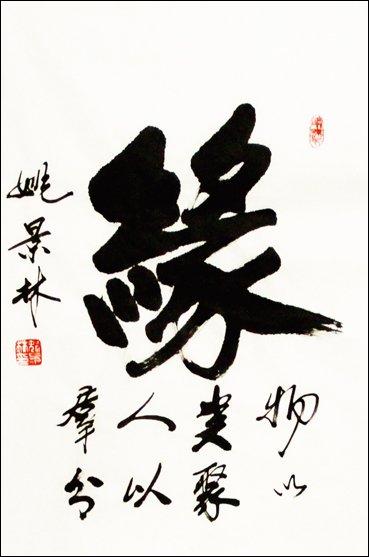 緣
物以
类聚
人以
羣分
姚景林